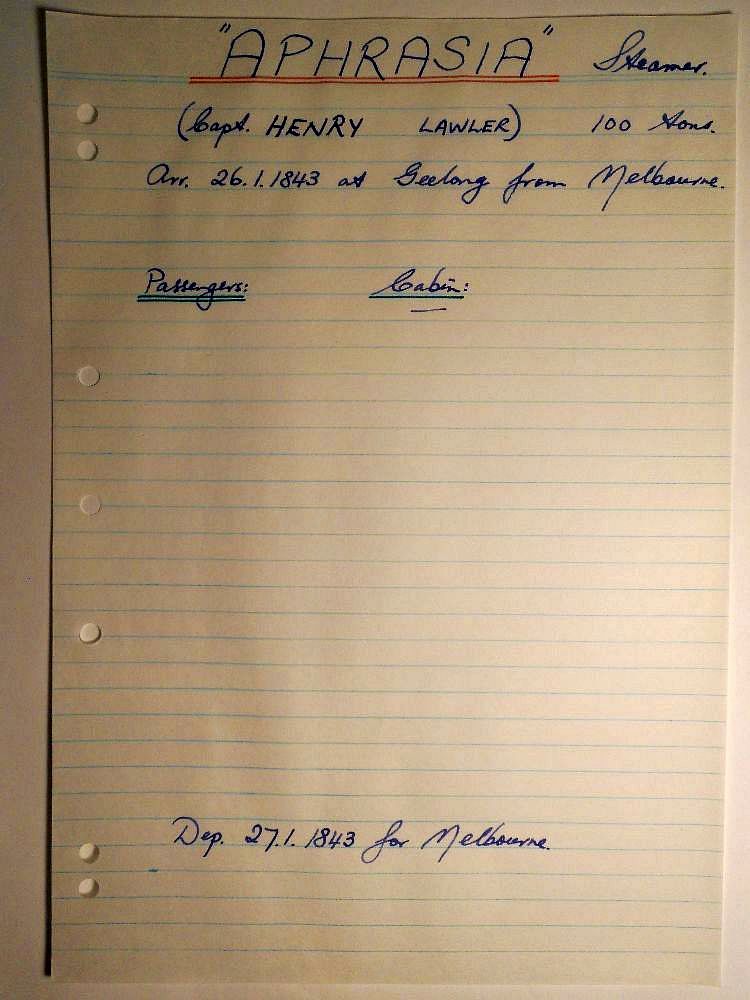 "APHRASIA" Steamer.
(Capt. HENRY LAWLER) 100 tons.
Arr. 26.1.1843 at Geelong from Melbourne.
Passengers: Cabin:
Dep. 27.1.1843 for Melbourne.